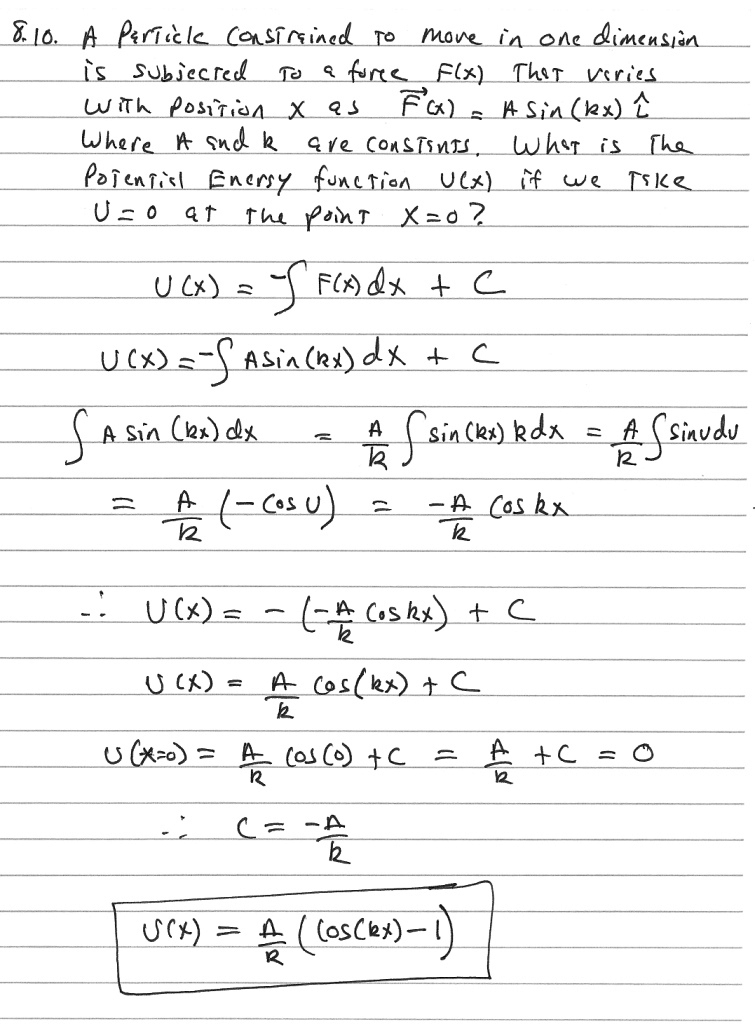 8.10. A Particle Constrained to move in one dimension
is subjected to a force F(x) That varies
with Position x as F⃗(x) = A Sin(kx) î
Where A and k are constants. What is The
Potential Energy function U(x) if we Take
U=0 at the point x=0?
U(x) = -∫ F(x)dx + C
U(x) = -∫ A sin(kx) dx + C
∫ A sin(kx) dx = A/k ∫ sin(kx) k dx = A/k ∫ sin u du
= A/k (-cos u) = -A/k Cos kx
∴ U(x) = - (-A/k Cos kx) + C
U(x) = A/k Cos(kx) + C
U(x=0) = A/k Cos(0) + C = A/k + C = 0
∴ C = -A/k
U(x) = A/k (Cos(kx)-1)